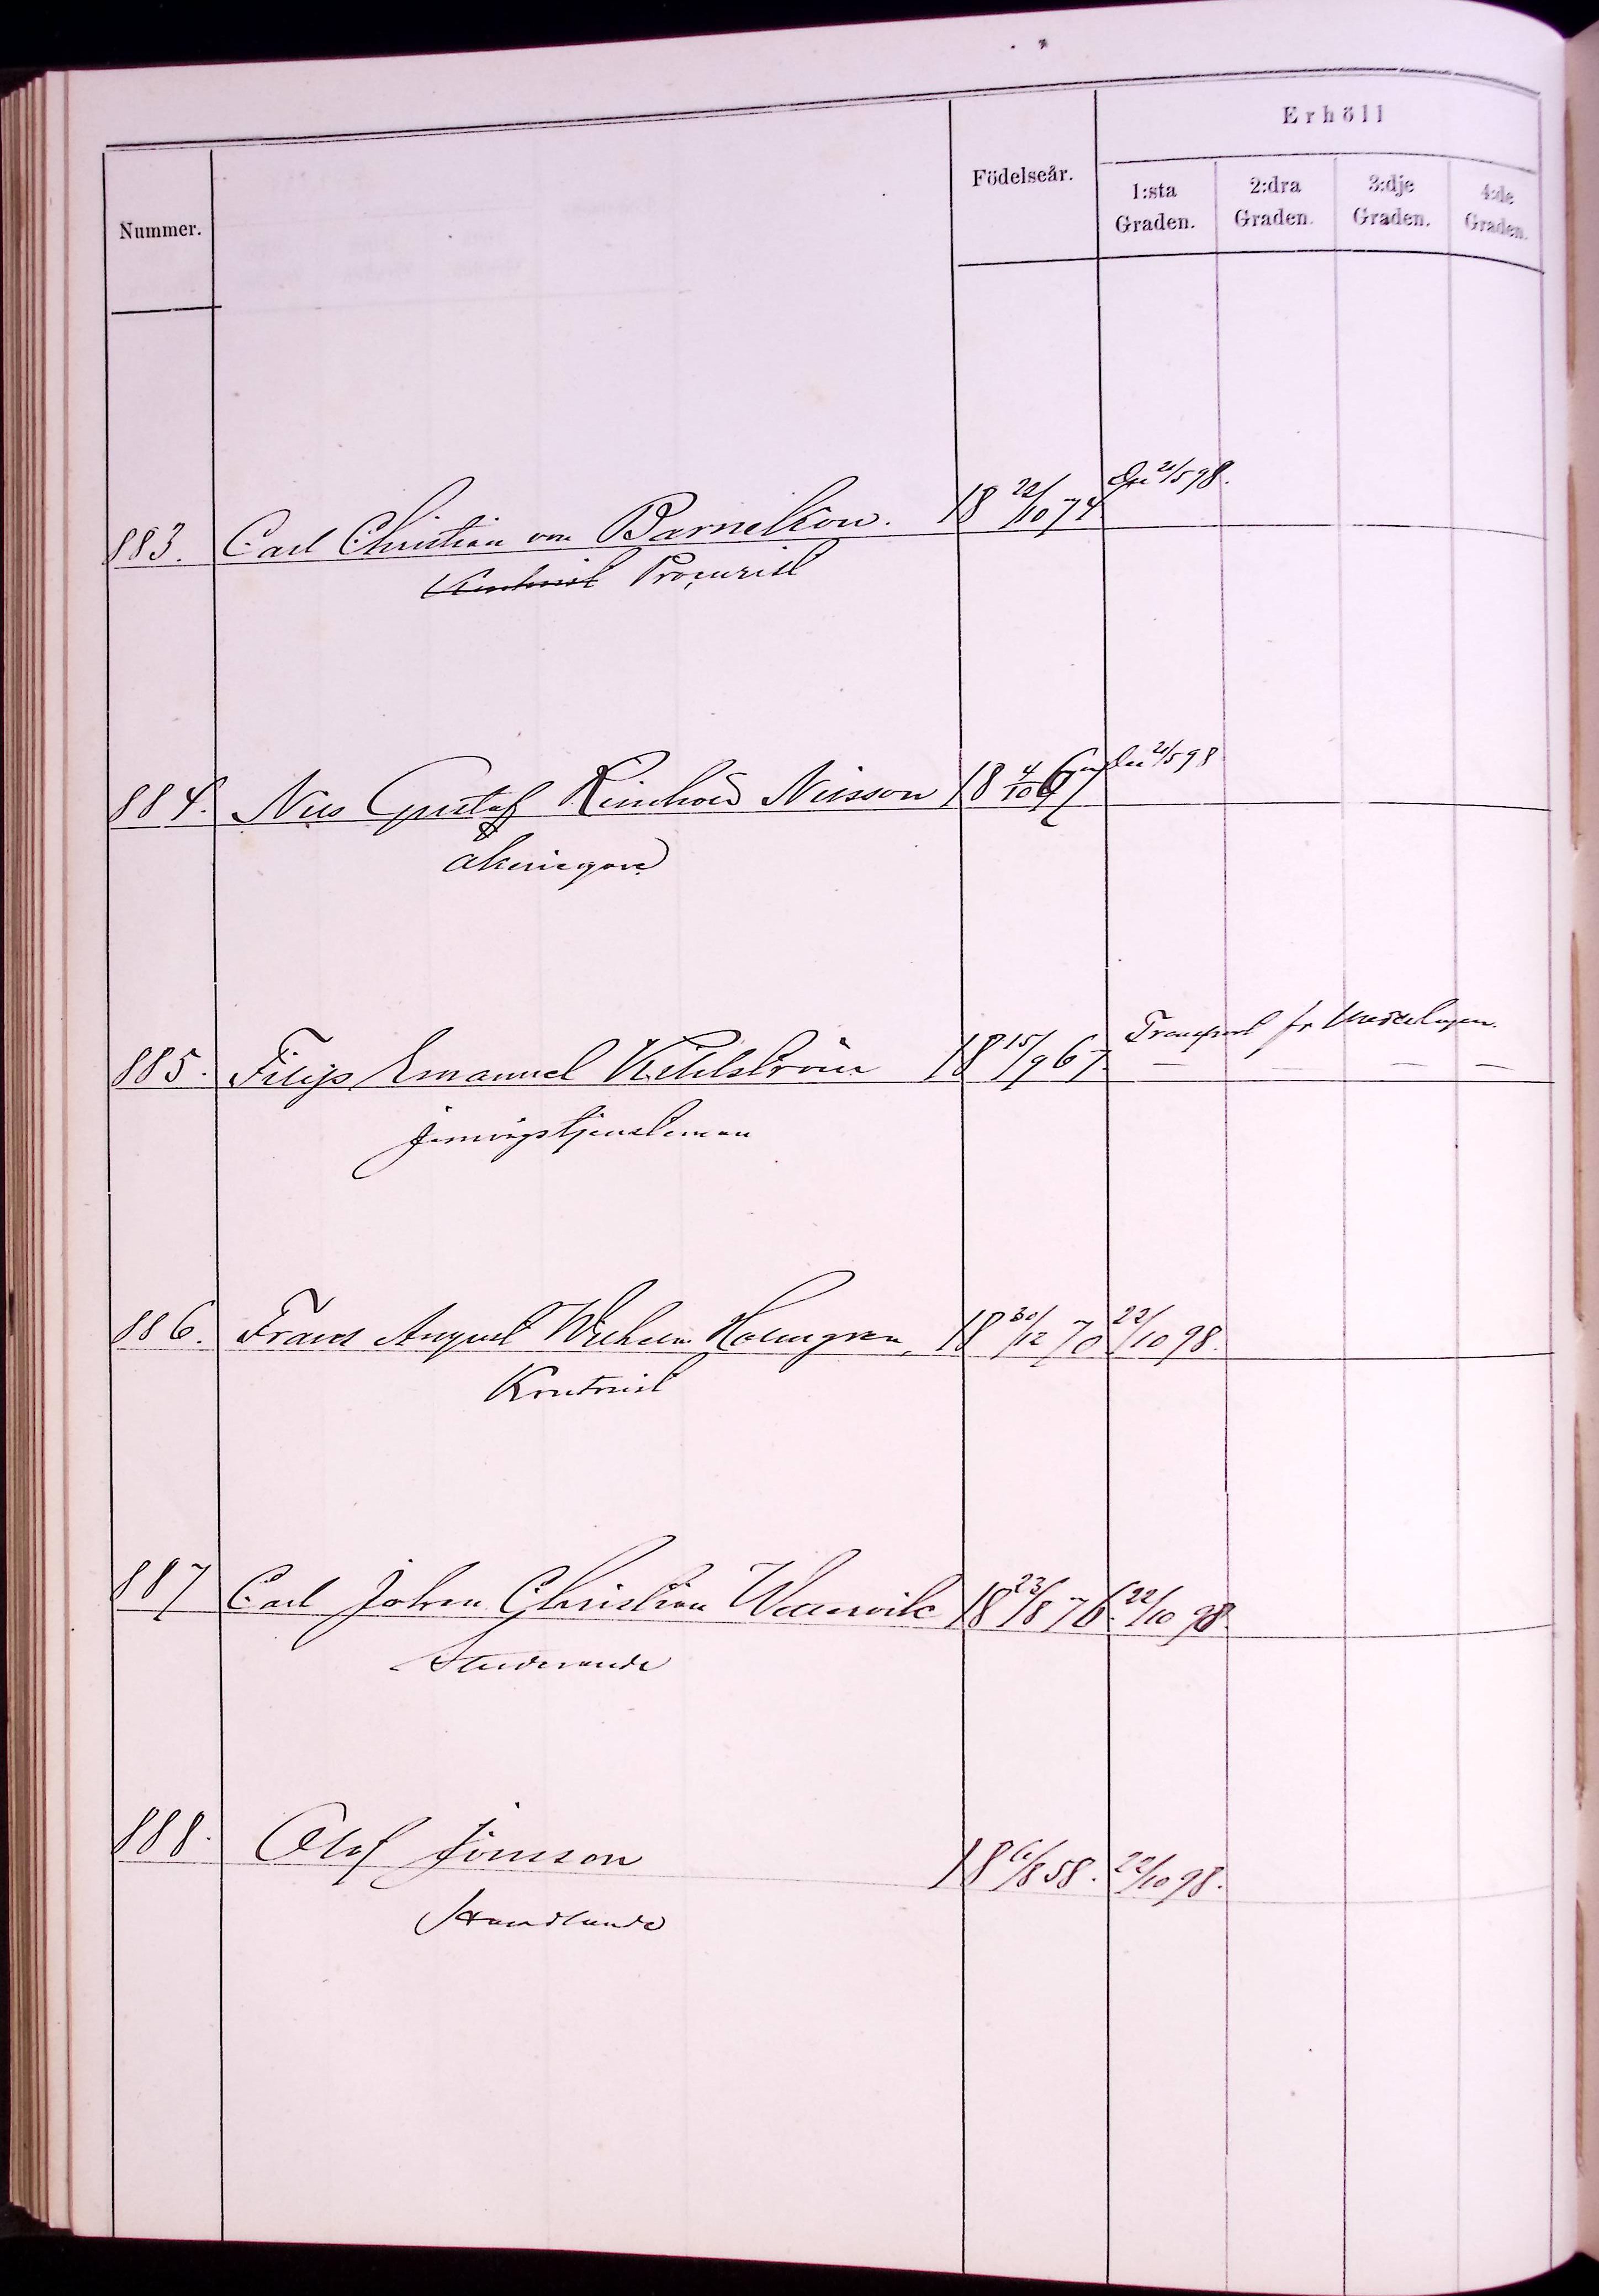 Erhöll
Nummer. Födelseår. 1:sta Graden. 2:dra Graden. 3:dje Graden. 4:de Graden.
883. Carl Christian von Barnekow. 18 22/10 74 21/5 98.
Kontorist Procurist
884. Nils Gustaf Reinhold Nilsson 18 4/10 67 21/5 98
åkeriegare
885. Filip Emanuel Kihlström 18 15/9 67. Transport fr Meddelagen.
— — — —
jernvägstjensteman
886. Frans August Wilhelm Holmgren, 18 30/12 70 22/10 98.
Kontorist
887 Carl Johan Christian 18 23/8 76. 22/10 98.
Studerande
888. Olof Jönsson 18 6/8 58. 22/10 98.
Handlande